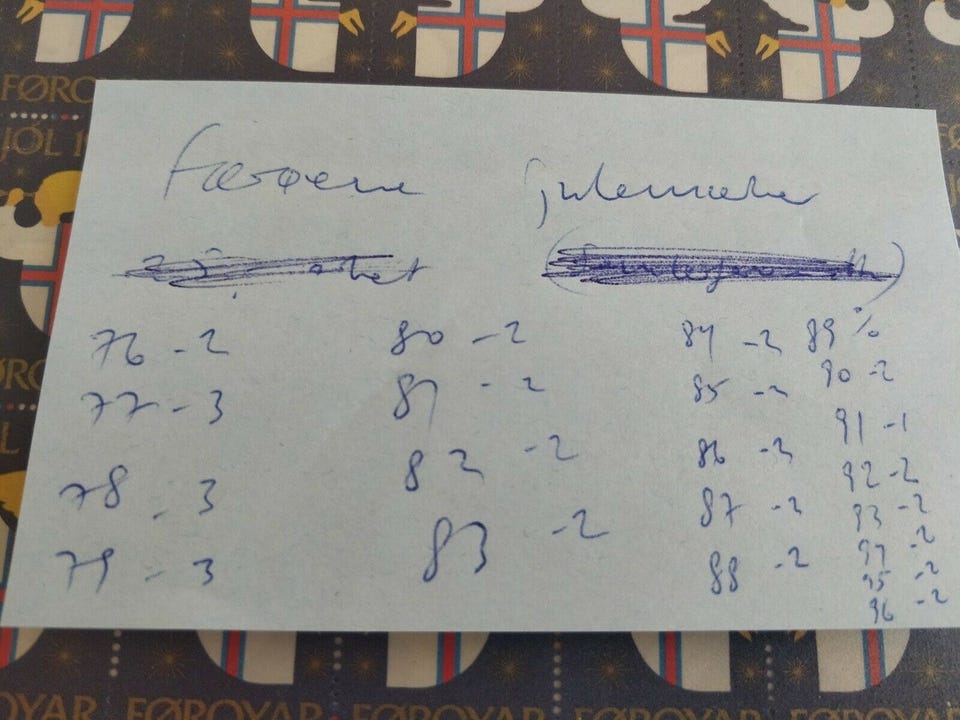 FØRO
JÓL 1
Færøerne Julemærker
76 - 2
77 - 3
78 - 3
79 - 3
80 - 2
81 - 2
82 - 2
83 - 2
84 - 2
85 - 2
86 - 2
87 - 2
88 - 2
89 %
90 - 2
91 - 1
92 - 2
93 - 2
94 - 2
95 - 2
96 - 2
OYAR FØROYAR FØROYAR FØROYAR FØROYAR